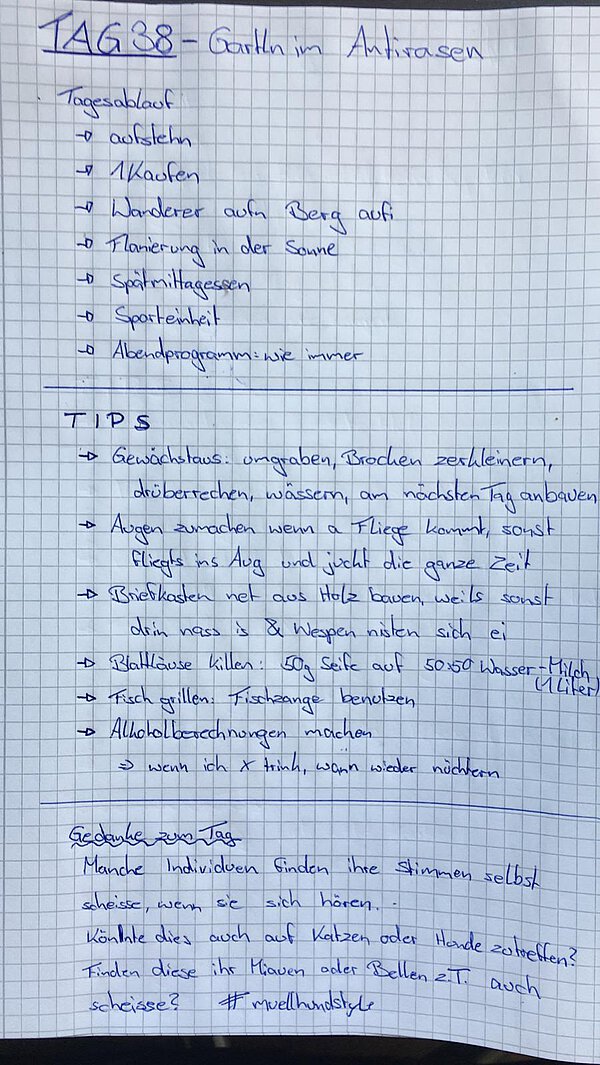 TAG 38 - Gartln im Antirasen
Tagesablauf
→ aufstehn
→ 1Kaufen
→ Wanderer aufn Berg aufi
→ Flanierung in der Sonne
→ Spätmittagessen
→ Sporteinheit
→ Abendprogramm: wie immer
TIPS
→ Gewächstaus: umgraben, Brocken zerkleinern,
drüberrechen, wässern, am nächsten Tag anbauen
→ Augen zumachen wenn a Fliege kommt, sonst
fliegts ins Aug und juckt die ganze Zeit
→ Briefkasten net aus Holz bauen, weils sonst
drin nass is & Wespen nisten sich ei
→ Blattläuse killen: 50g Seife auf 50:50 Wasser-Milch
(1 Liter)
→ Fisch grillen: Fischzange benutzen
→ Alkoholberechnungen machen
⇒ wenn ich x trink, wann wieder nüchtern
Gedanke zum Tag
Manche Individuen finden ihre Stimmen selbst
scheisse, wenn sie sich hören...
Könnte dies auch auf Katzen oder Hunde zutreffen?
Finden diese ihr Miauen oder Bellen z.T. auch
scheisse? #muellhundstyle